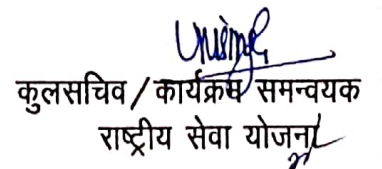 कुलसचिव / कार्यक्रम समन्वयक
राष्ट्रीय सेवा योजना